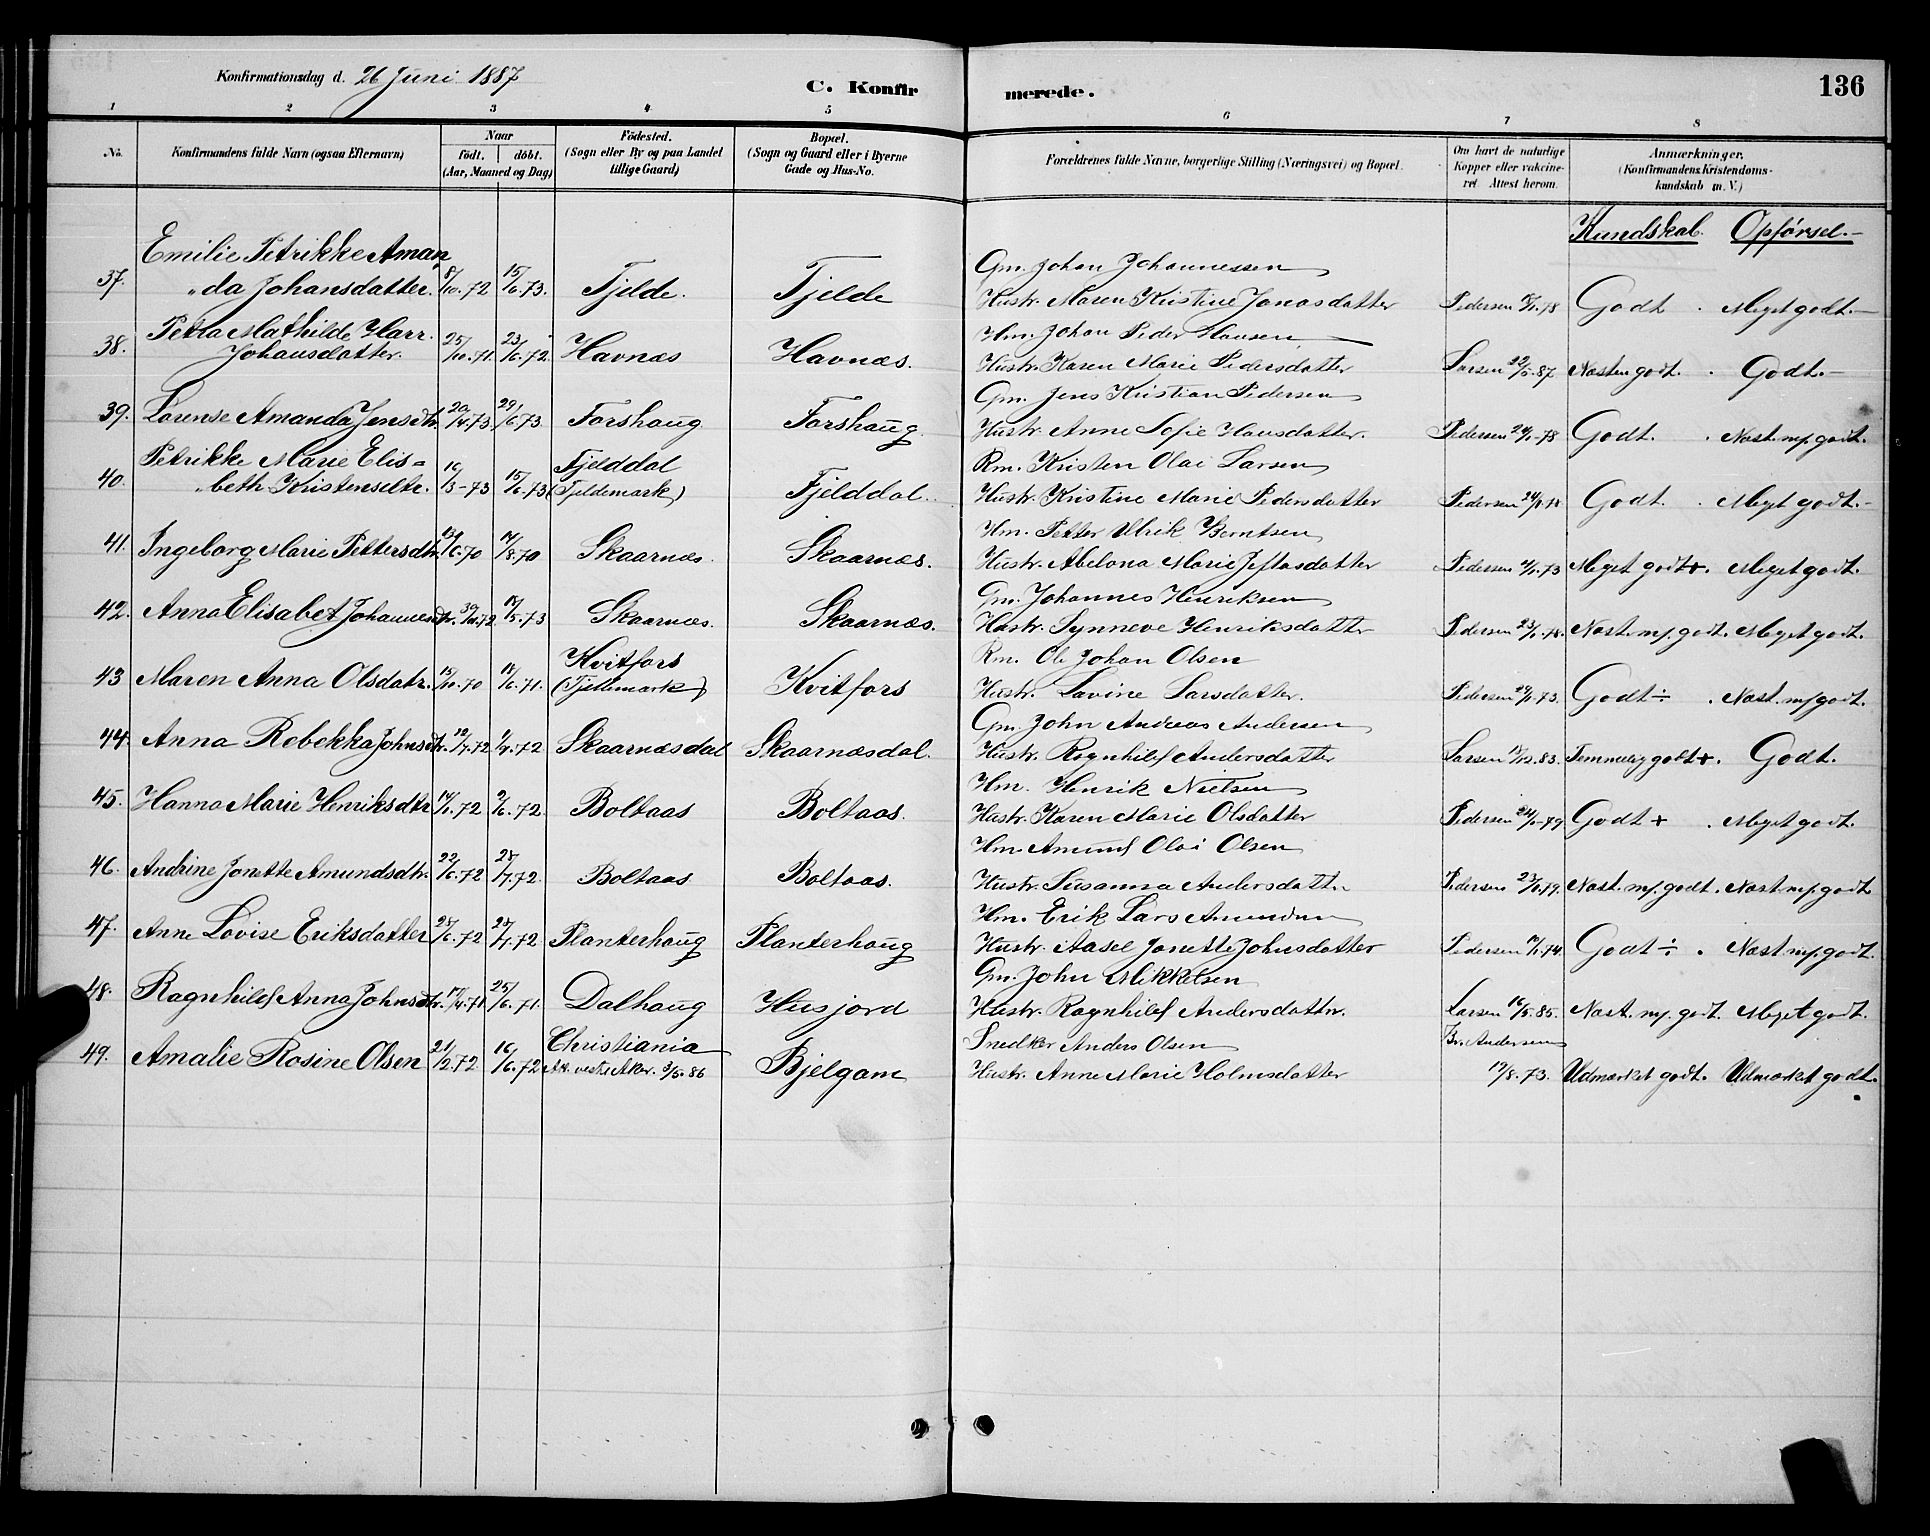 Konfirmationsdag d. 26 Juni 1887
C. Konfir merede. 136
1 2 3 4 5 6 7 8
No. Konfirmandens fulde Navn (ogsaa Efternavn)
Naar født. døbt. (Aar, Maaned og Dag)
Fødested. (Sogn eller By og paa Landet tillige Gaard)
Bopæl. (Sogn og Gaard eller i Byerne Gade og Hus-No.
Forældrenes fulde Navne, borgerlige Stilling (Næringsvei) og Bopæl.
Om havt de naturlige Kopper eller vakcineret Attest herom.
Anmærkninger. (Konfirmandens Kristendomskundskab m. V.)
Kundskab. Opførsel.-
Emilie Petrikke Aman, Gm. Johan Johannessen
37. "da Johansdatter. 8/10.72 15/6.73. Tjelde. Tjelde Hustr. Maren Kristine Jonasdatter Pedersen Godt . Meget godt.-
Petra Mathilde Harr. Hm. Johan Peder Hansen
38. Johansdatter. 25/10.71. 23/6.72. Havnæs Havnæs. Hustr. Karen Marie Pedersdatter Larsen 22/5.87 Næsten godt. . Godt.-
Gm. Jens Kristian Pedersen
39. Lorense Amanda Jensdtr. 20/4.73. 29/6.73. Forshaug Forshaug Hustr. Anne Sofie Hansdatter. Pedersen 24/1-78 Godt. . Næst. m. godt.
Petrikke Marie Elis= Fjelddal Rm. Kristen Olai Larsen
40. "beth Kristensdtr. 16/3-73 15/6.73 (Tjeldemark) Fjelddal. Hustr. Kristine Marie Pedersdatter Pedersen Godt. . Meget godt.-
Hm. Petter Ulrik Berntsen
41. Ingeborg Marie Pettersdtr. /6.70 14/8.70 Skaarnæs. Skaarnæs. Hustr. Abelona Marie Jeftasdatter Pedersen Meget godt+. Meget godt.
Gm. Johannes Henriksen
42. Anna Elisabet Johannesdtr. 30/10.72 18/5.73 Skaarnæs. Skaarnæs. Hustr. Synneve Henriksdatter Pedersen Næst. m. godt. Meget godt.
Kvitfors Rm. Ole Johan Olsen
43 Maren Anna Olsdatr. 15/10.70 18/6.71. (Tjeldemark) Kvitfors Hustr. Lavine Larsdatter. Pedersen Godt÷ . Næst. m. godt.
Gm. John Andreas Andersen
44. Anna Rebekka Johnsdtr. 12/7.72 Skaarnæsdal Skaarnæsdal. Hustr. Ragnhild Andersdatter Larsen 18/12.83. Temmelig godt+. Godt.
Hm. Henrik Nielsen
45. Hanna Marie Henriksdtr 14/1.72 9/6.72. Boltaas Boltaas. Hustr. Karen Marie Olsdatter Pedersen 24/1-79. Godt + . Meget godt.
Hm. Amund Olai Olsen
46. Andrine Jonette Amundsdtr. 22/6.72 28/7.72. Boltaas Boltaas. Hustr. Susanna Andersdatter Pedersen Næst. m. godt. Næst. m. godt.
Hm. Erik Lars Amundsen
47. Anne Lovise Eriksdatter 25/6.72 28/7.72 Planterhaug Planterhaug Hustr. Aasel Jonette Johnsdatter Pedersen Godt÷ . Næst. m. godt.
Gm. John Mikkelsen
48. Ragnhild Anna Johnsdtr. 17/4.71 25/6.71. Dalhaug Husjord Hustr. Ragnhild Andersdattr. Larsen 16/5.85. Næst. m. godt. Meget godt.
Christiania Snedker Anders Olsen Br. Andersen
49. Amalie Rosine Olsen 21/2.72. 16/6.72 Att. vestr. Aker. 3/5.86 Bjelgam Hustr. Anne Marie Holmsdatter 19/8.73. Udmærket godt. Udmærket godt.